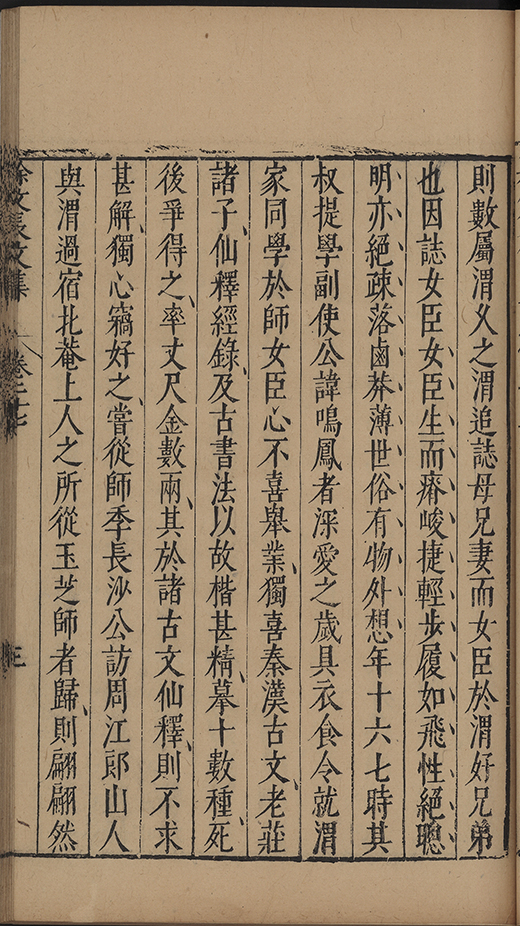 則數屬渭乂之渭追誌母兄妻而女臣於渭好兄弟
也因誌女臣女臣生而瘠峻捷輕步履如飛性絕聰
明亦絕疎落鹵莽薄世俗有物外想年十六七時其
叔提學副使公諱鳴鳳者深愛之歲具衣食令就渭
家同學於師女臣心不喜舉業獨喜秦漢古文、老莊
諸子、仙釋經錄、及古書法以故楷甚精、摹十數種、死
後爭得之、率丈尺金數兩、其於諸古文仙釋、則不求
甚解、獨心竊好之、嘗從師季長沙公訪周江郎山人
與渭過宿北菴上人之所從玉芝師者歸、則翩翩然
徐文長文集 卷之二十七 三